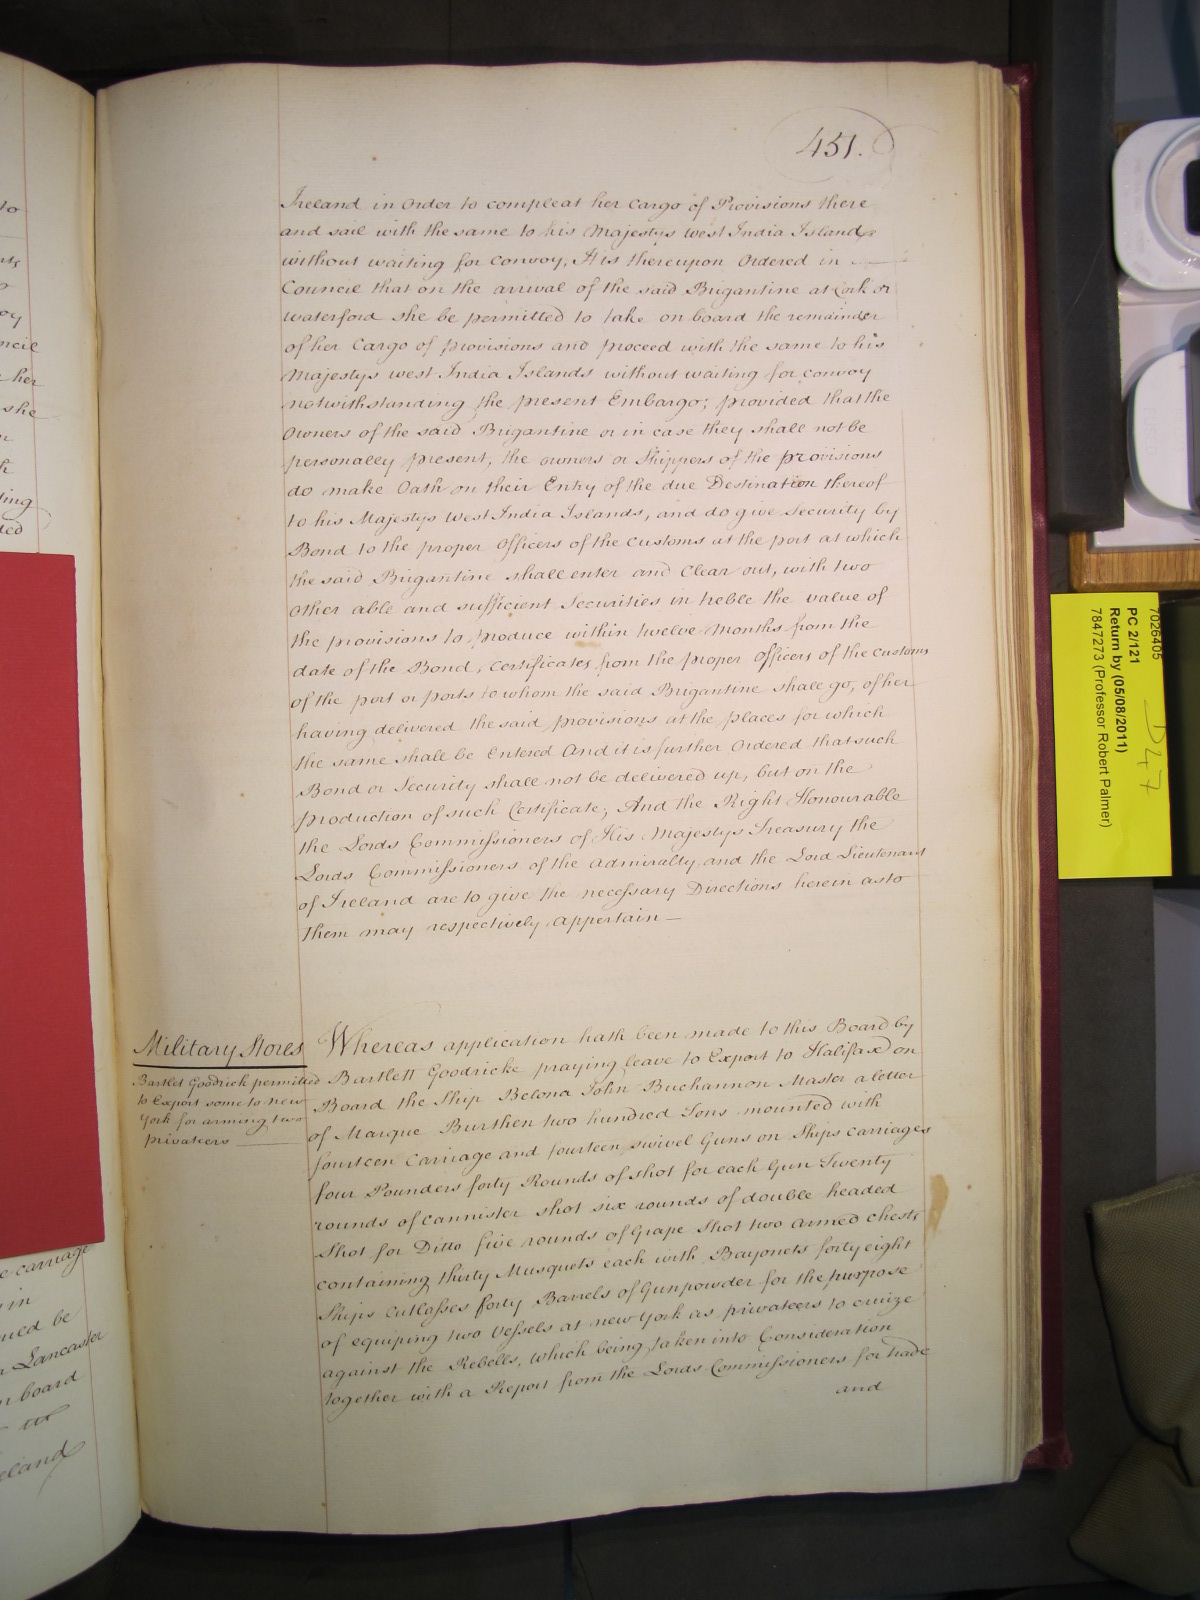 451.
Ireland in Order to compleat her Cargo of Provisions there
and sail with the same to his Majestys West India Islands
without waiting for Convoy, It is thereupon Ordered in
Council that on the arrival of the said Brigantine at Cork or
Waterford she be permitted to take on board the remainder
of her Cargo of provisions and proceed with the same to his
Majestys West India Islands without waiting for convoy
notwithstanding the present Embargo; provided that the
Owners of the said Brigantine or in case they shall not be
personally present, the owners or Shippers of the provisions
do make Oath on their Entry of the due Destination thereof
to his Majestys West India Islands, and do give Security by
Bond to the proper Officers of the Customs at the port at which
the said Brigantine shall enter and Clear out, with two
other able and sufficient Securities in treble the value of
the provisions to produce within twelve Months from the
date of the Bond, Certificates from the proper Officers of the Customs
of the port or ports to whom the said Brigantine shall go, of her
having delivered the said provisions at the places for which
the same shall be Entered And it is further Ordered that such
Bond or Security shall not be delivered up, but on the
production of such Certificate; And the Right Honourable
the Lords Commissioners of His Majestys Treasury the
Lords Commissioners of the Admiralty and the Lord Lieutenant
of Ireland are to give the necessary Directions herein as to
them may respectively appertain —
Military Stores
Bartlet Goodrick permitted
to Export some to new
York for arming two
privateers
Whereas application hath been made to this Board by
Bartlett Goodricke praying leave to Export to Halifax on
Board the Ship Belona John Buchannon Master a letter
of Marque Burthen two hundred Tons mounted with
fourteen Carriage and fourteen swivel Guns on Ships carriages
four Pounders forty Rounds of shot for each Gun Twenty
rounds of Cannister shot six rounds of double headed
Shot for Ditto five rounds of Grape Shot two armed Chests
containing thirty Musquets each with Bayonets forty eight
Ships Cutlasses forty Barrels of Gunpowder for the purpose
of equiping two Vessels at new York as privateers to cruize
against the Rebells, which being taken into Consideration
together with a Report from the Lords Commissioners for trade
and
7026405
PC 2/121
Return by (05/08/2011)
7847273 (Professor Robert Palmer)
D47
to
ncil
her
she
ting
carriage
in
be
Lancaster
board